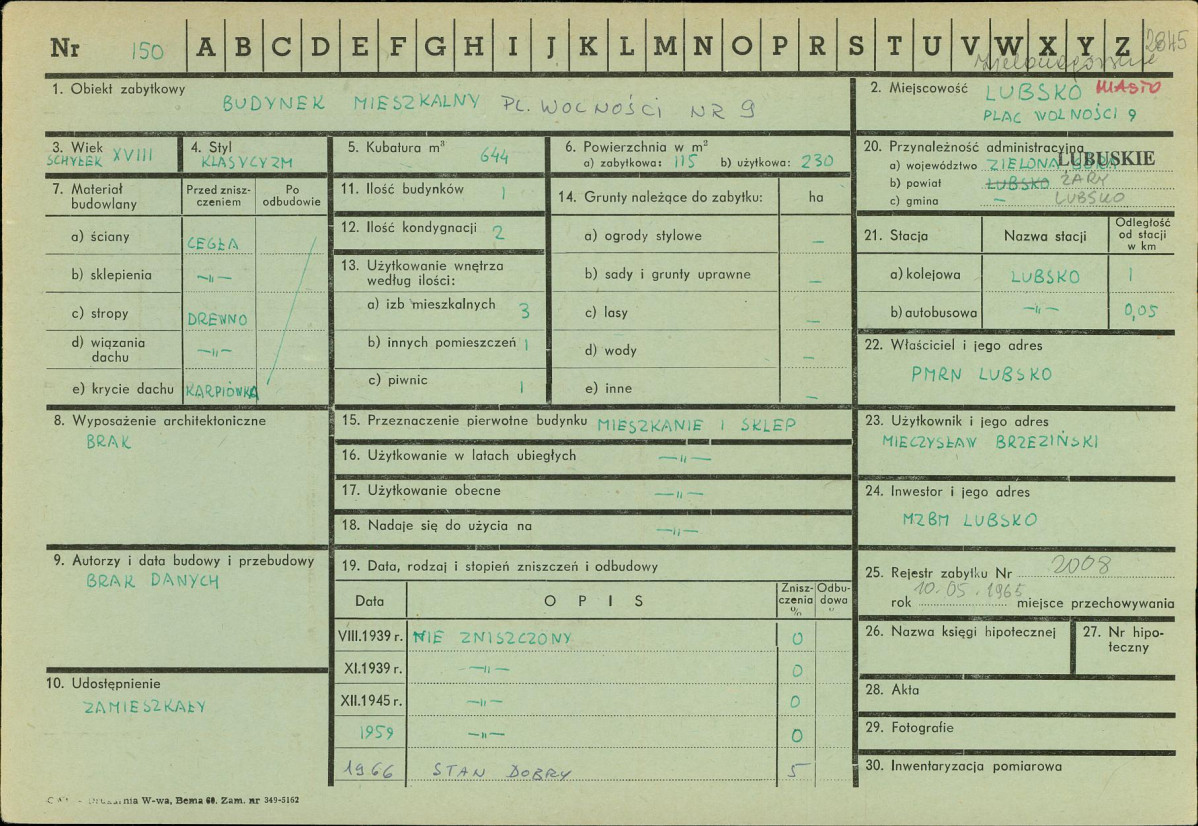 Nr 150 A B C D E F G H I J K L M N O P R S T U V W X Y Z 2845
1. Obiekt zabytkowy
BUDYNEK MIESZKALNY PL. WOLNOŚCI NR 9
2. Miejscowość LUBSKO MIASTO
PLAC WOLNOŚCI 9
3. Wiek
SCHYŁEK XVIII
4. Styl
KLASYCYZM
5. Kubatura m³
644
6. Powierzchnia w m²
a) zabytkowa: 115 b) użytkowa: 230
20. Przynależność administracyjna
a) województwo ZIELONA GÓRA LUBUSKIE
b) powiat LUBSKO ŻARY
c) gmina — LUBSKO
7. Materiał budowlany
Przed znisz-
czeniem
Po
odbudowie
a) ściany CEGŁA
b) sklepienia —„—
c) stropy DREWNO
d) wiązania
dachu —„—
e) krycie dachu KARPIÓWKA
11. Ilość budynków 1
12. Ilość kondygnacji 2
13. Użytkowanie wnętrza
według ilości:
a) izb mieszkalnych 3
b) innych pomieszczeń 1
c) piwnic 1
14. Grunty należące do zabytku: ha
a) ogrody stylowe —
b) sady i grunty uprawne —
c) lasy —
d) wody —
e) inne —
21. Stacja
Nazwa stacji
Odległość
od stacji
w km
a) kolejowa LUBSKO 1
b) autobusowa —„— 0,05
22. Właściciel i jego adres
PMRN LUBSKO
8. Wyposażenie architektoniczne
BRAK
15. Przeznaczenie pierwotne budynku MIESZKANIE I SKLEP
16. Użytkowanie w latach ubiegłych —„—
17. Użytkowanie obecne —„—
18. Nadaje się do użycia na —„—
23. Użytkownik i jego adres
MIECZYSŁAW BRZEZIŃSKI
24. Inwestor i jego adres
MZBM LUBSKO
9. Autorzy i data budowy i przebudowy
BRAK DANYCH
19. Data, rodzaj i stopień zniszczeń i odbudowy
Data
OPIS
Znisz-
czenia
%
Odbu-
dowa
VIII.1939 r. NIE ZNISZCZONY 0
XI.1939 r. —„— 0
XII.1945 r. —„— 0
1959 —„— 0
1966 STAN DOBRY 5
25. Rejestr zabytku Nr 2008
rok 10.05.1965 miejsce przechowywania
26. Nazwa księgi hipotecznej
27. Nr hipo-
teczny
10. Udostępnienie
ZAMIESZKAŁY
28. Akta
29. Fotografie
30. Inwentaryzacja pomiarowa
W-wa, Bema 60. Zam. nr 349-5162